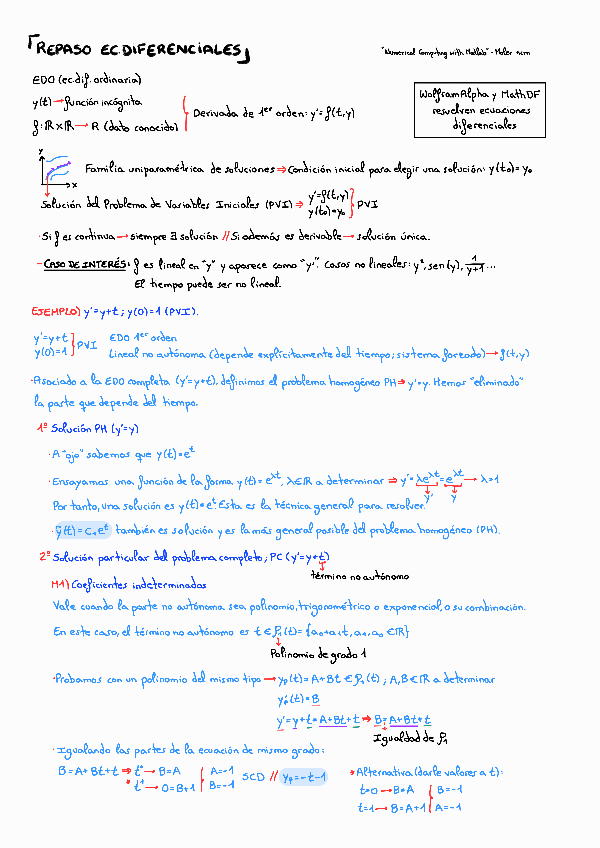 「REPASO EC.DIFERENCIALES」
"Numerical Computing with Matlab" - Moler ncm
EDO (ec.dif. ordinaria)
y(t)→función incógnita
f: ℝ×ℝ→ℝ (dato conocido)
Derivada de 1er orden: y'=f(t,y)
WolframAlpha y MathDF
resuelven ecuaciones
diferenciales
y
x
Familia uniparamétrica de soluciones ⇒ Condición inicial para elegir una solución: y(t₀)=y₀
Solución del Problema de Variables Iniciales (PVI) ⇒ y'=f(t,y)
y(t₀)=y₀
PVI
·Si f es continua → siempre ∃ solución // Si además es derivable → solución única.
-CASO DE INTERÉS: f es lineal en "y" y aparece como "y". Casos no lineales: y², sen(y), 1/(y+1) ...
El tiempo puede ser no lineal.
EJEMPLO) y'=y+t ; y(0)=1 (PVI).
y'=y+t
y(0)=1
PVI
EDO 1er orden
Lineal no autónoma (depende explícitamente del tiempo; sistema forzado)→f(t,y)
·Asociado a la EDO completa (y'=y+t), definimos el problema homogéneo PH ⇒ y'=y. Hemos "eliminado"
la parte que depende del tiempo.
1º Solución PH (y'=y)
·A "ojo" sabemos que y(t)=eᵗ
·Ensayamos una función de la forma y(t)=e^λt, λ∈ℝ a determinar ⇒ y'=λe^λt=e^λt → λ=1
y' y
Por tanto, una solución es y(t)=eᵗ. Esta es la técnica general para resolver.
·ỹ(t)=C₁eᵗ también es solución y es la más general posible del problema homogéneo (PH).
2º Solución particular del problema completo; PC (y'=y+t)
término no autónomo
M1) Coeficientes indeterminados
Vale cuando la parte no autónoma sea polinomio, trigonométrico o exponencial, o su combinación.
En este caso, el término no autónomo es t ∈ P₁(t)={a₀+a₁t, a₁,a₀ ∈ℝ}
Polinomio de grado 1
·Probamos con un polinomio del mismo tipo → yp(t)=A+Bt ∈ P₁(t) ; A,B∈ℝ a determinar
yp'(t)=B
y'=y+t=A+Bt+t ⇒ B=A+Bt+t
Igualdad de P₁
·Igualando las partes de la ecuación de mismo grado:
B=A+Bt+t ⇒ t⁰→B=A
t¹→0=B+1
A=-1
B=-1
SCD // yp=-t-1
Alternativa (darle valores a t):
t=0→B=A
t=1→B=A+1
B=-1
A=-1